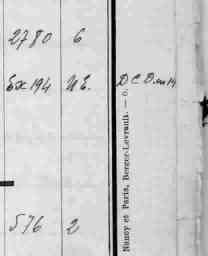 2780 6
Ex 194 U E. D C D m 14
576 2
Nancy et Paris, Berger-Levrault. — 6.